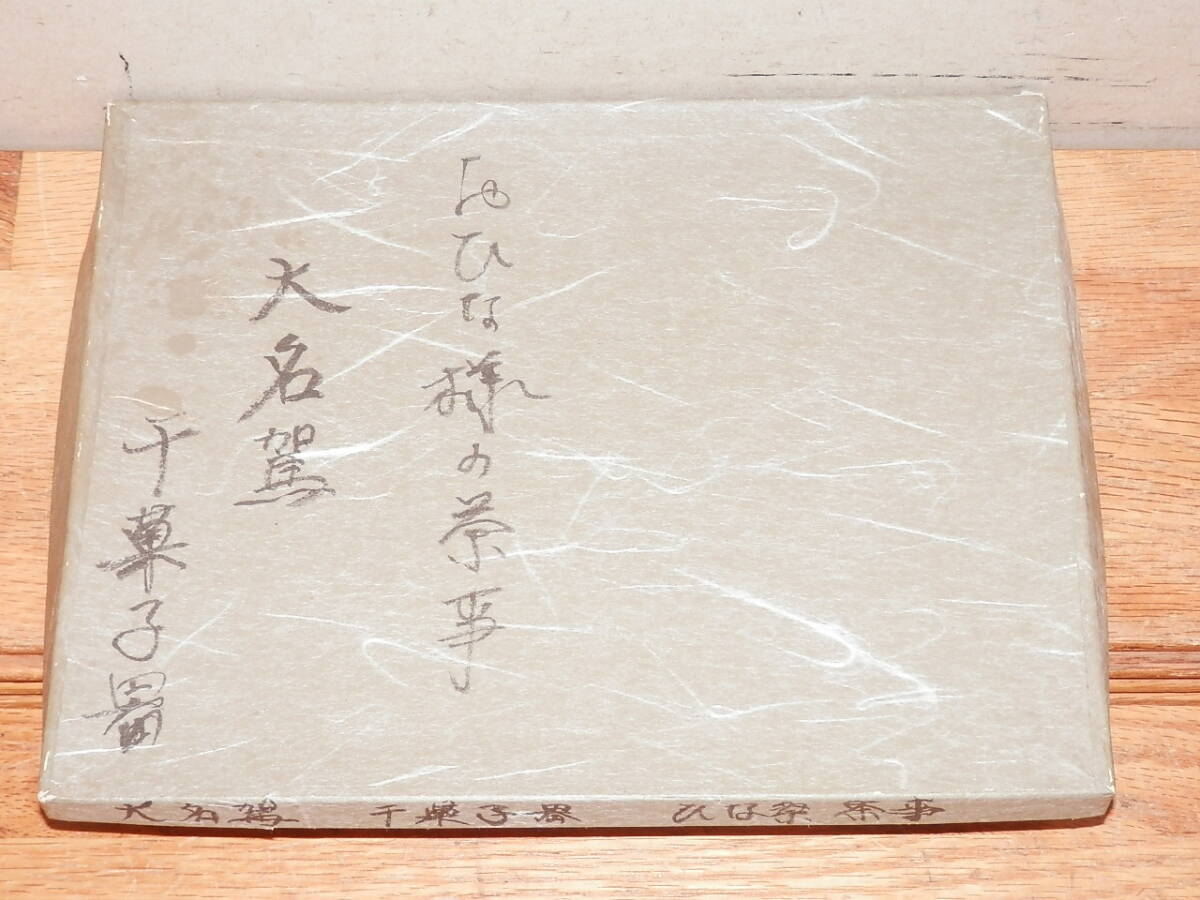 おひな様の茶事
大名駕
干菓子器
大名駕 干菓子器 ひな祭茶事